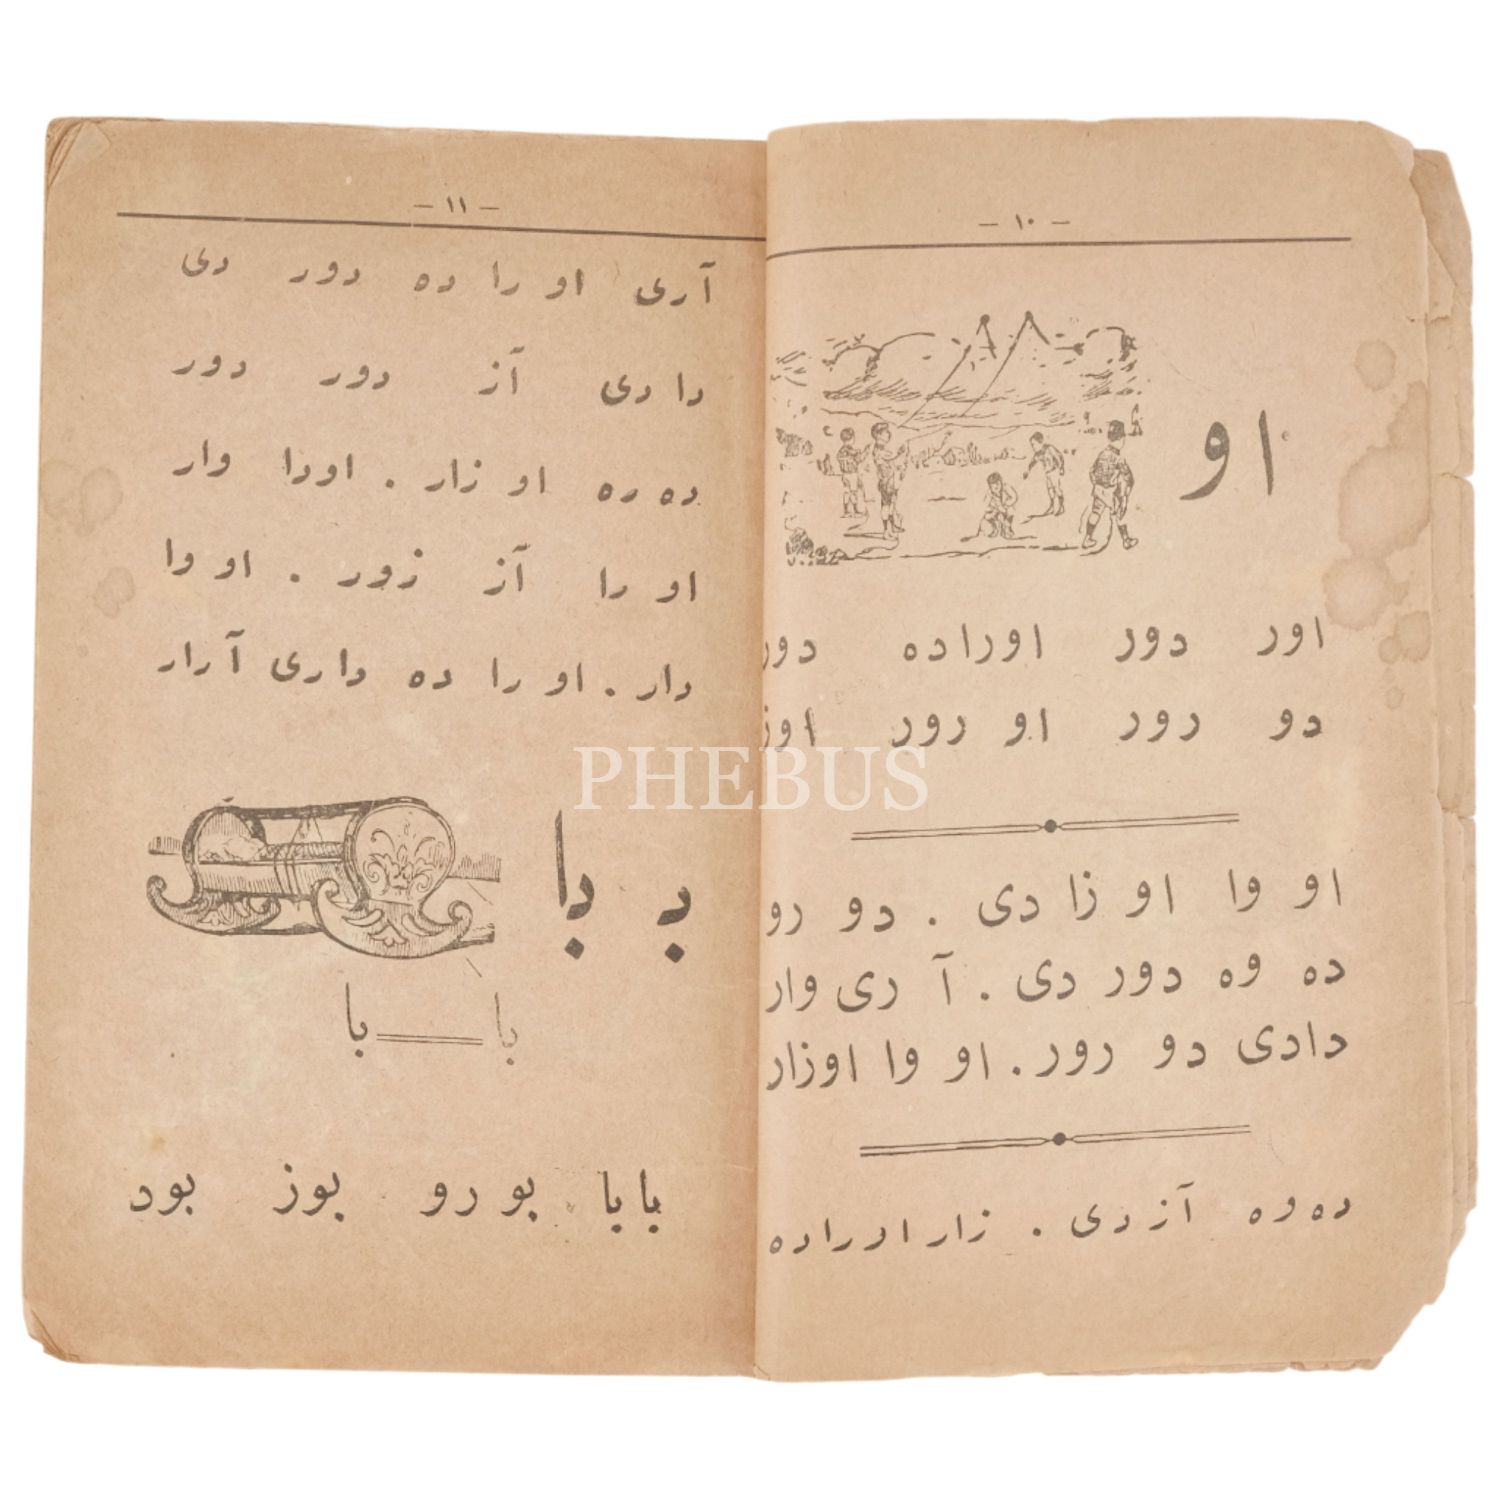 — ١٠ —
او
اور دور اوراده دور
دو رور او رور اوز
او وا او زا دی . دو رو
ده وه دور دی . آ ری وار
دادی دو رور . او وا اوزار
ده وه آز دی . زار اوراده
— ١١ —
آری او را ده دور دی
دا دی آز دور دور
ده ره او زار . اودا وار
او را آز زور . او وا
دار . او را ده داری آرار
ب با
با با
بابا بو رو بوز بود
PHEBUS